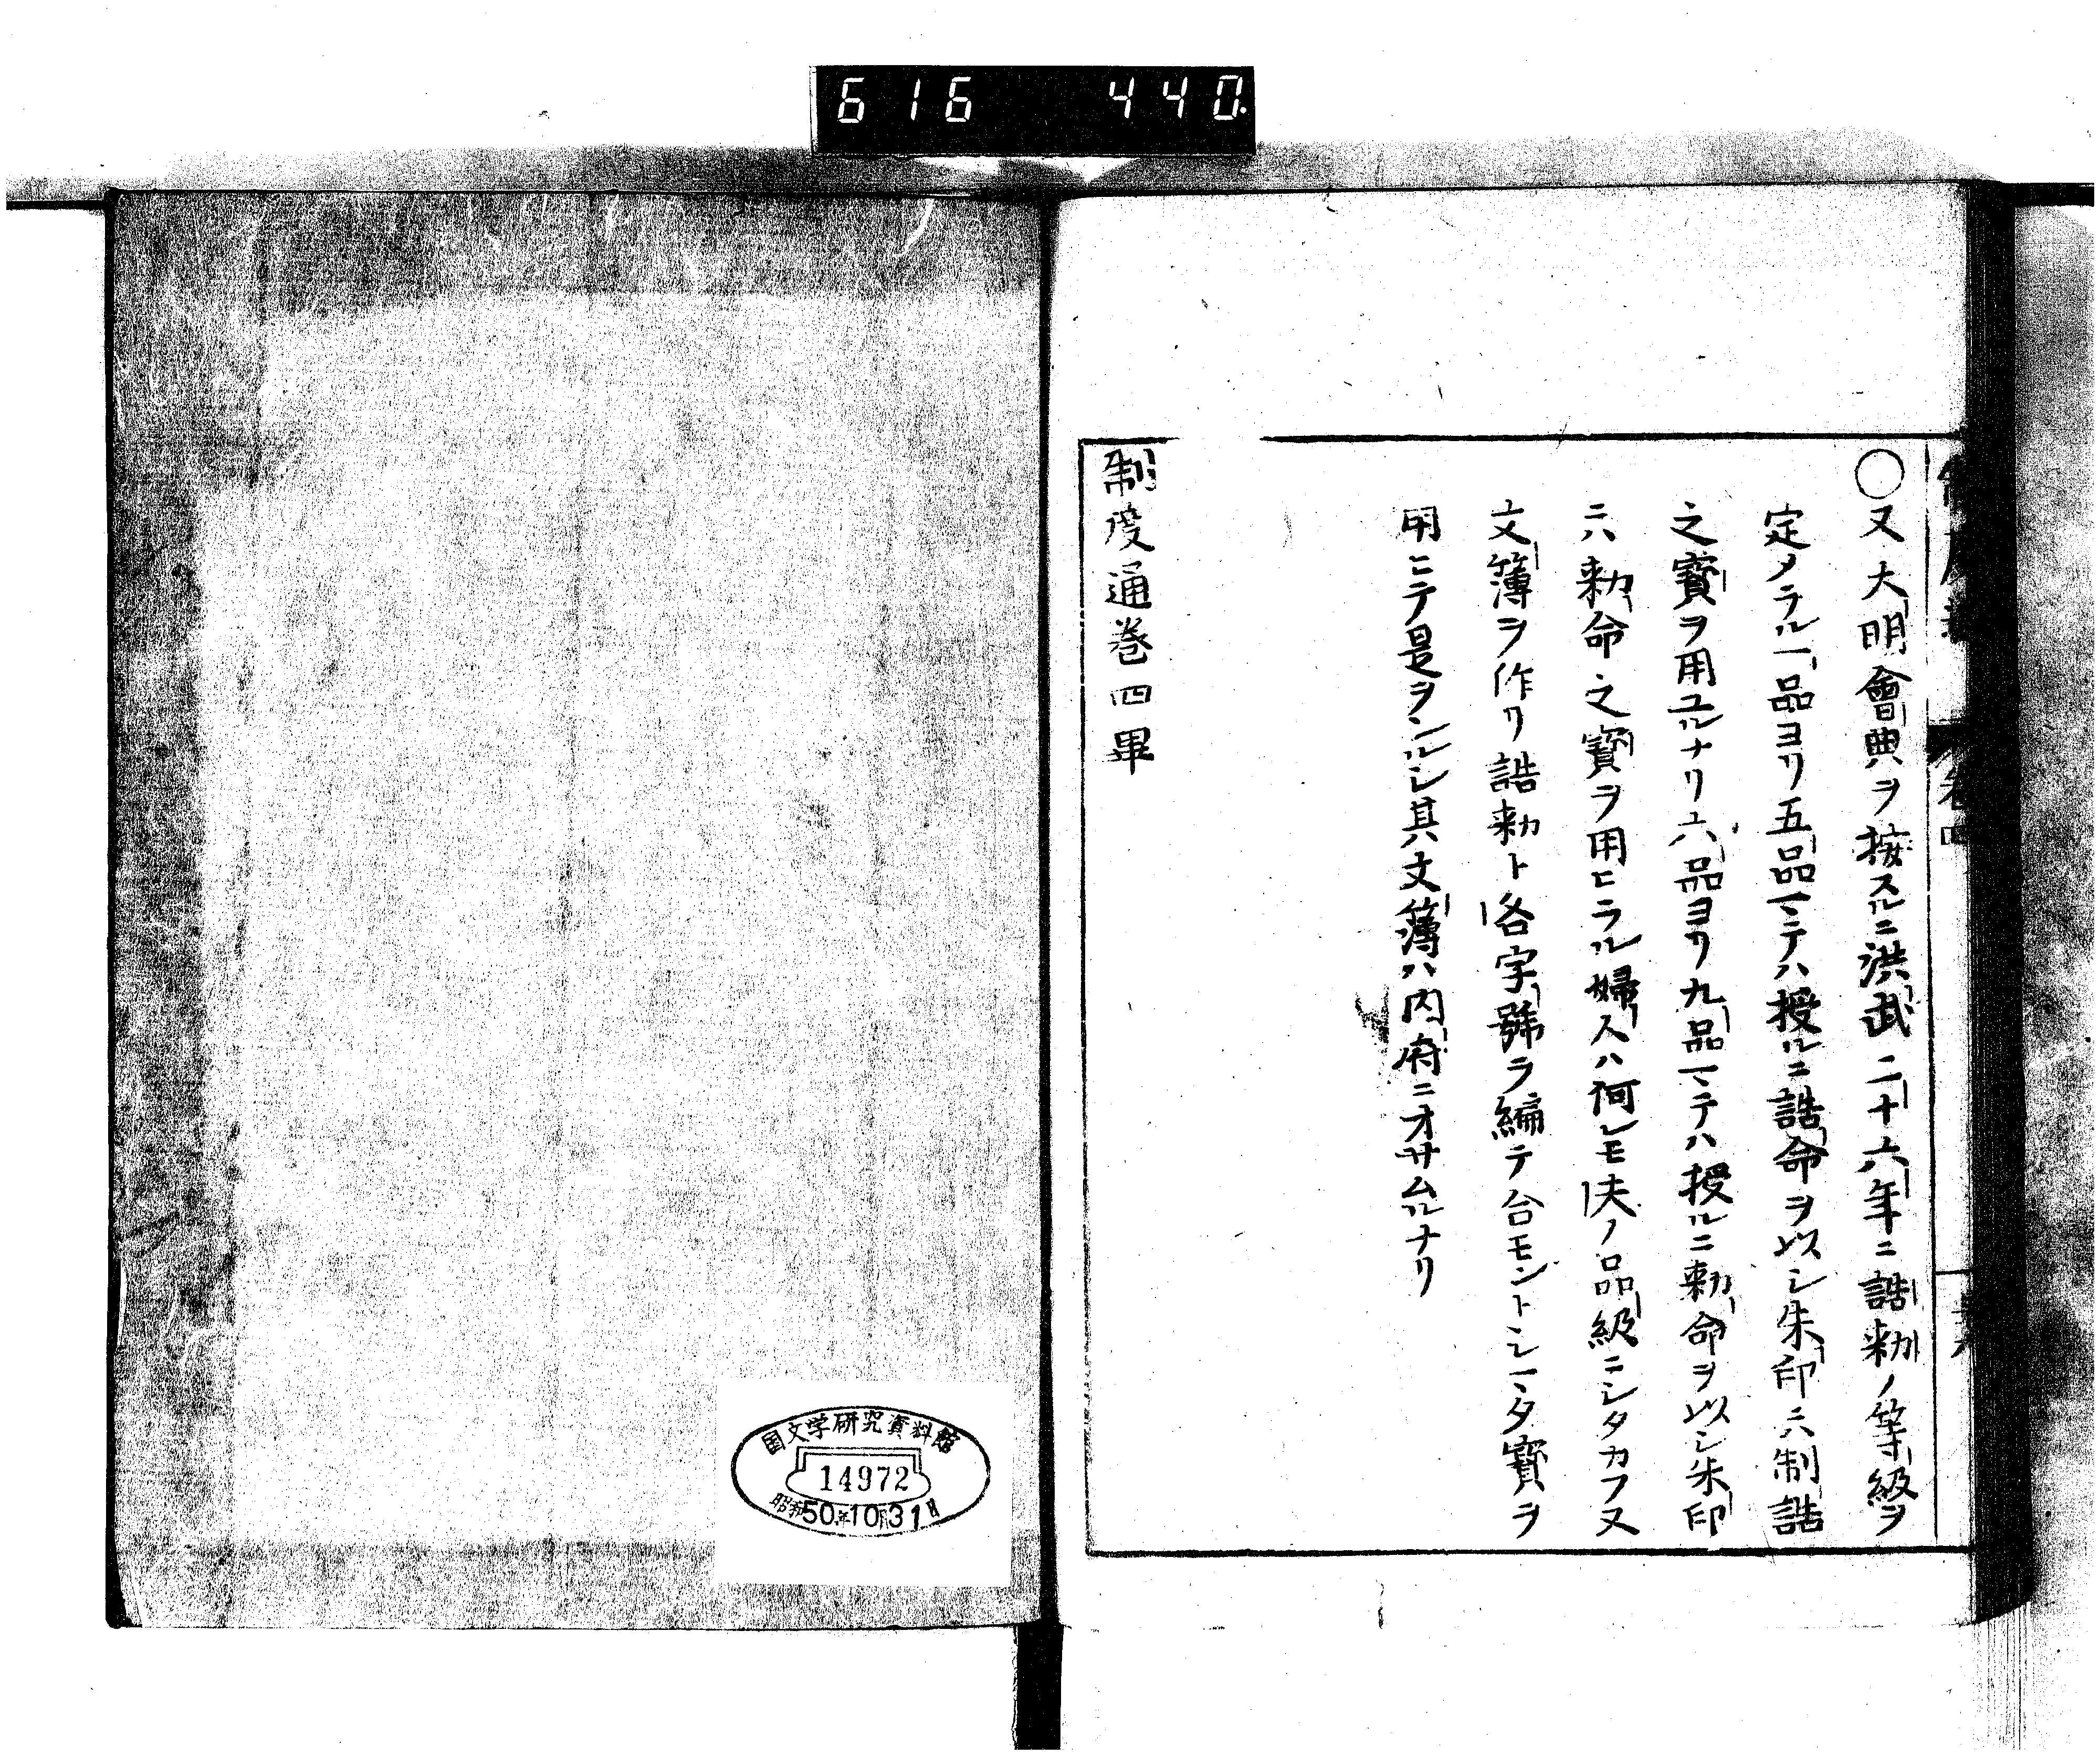 616 440
○又大明會典ヲ按スルニ洪武二十六年ニ誥勅ノ等級ヲ
定メラル一品ヨリ五品マテハ授ルニ誥命ヲ以シ朱印ニハ制誥
之寶ヲ用ユルナリ六品ヨリ九品マテハ授ルニ勅命ヲ以シ朱印
ニハ勅命之寶ヲ用ヒラル婦人ハ何レモ夫ノ品級ニシタカフ又
文簿ヲ作リ誥勅ト各字號ヲ編テ合モントシマタ寶ヲ
用ニテ是ヲシルシ其文簿ハ内府ニオサムルナリ
制度通巻四畢
国文学研究資料館
14972
昭和50年10月31日